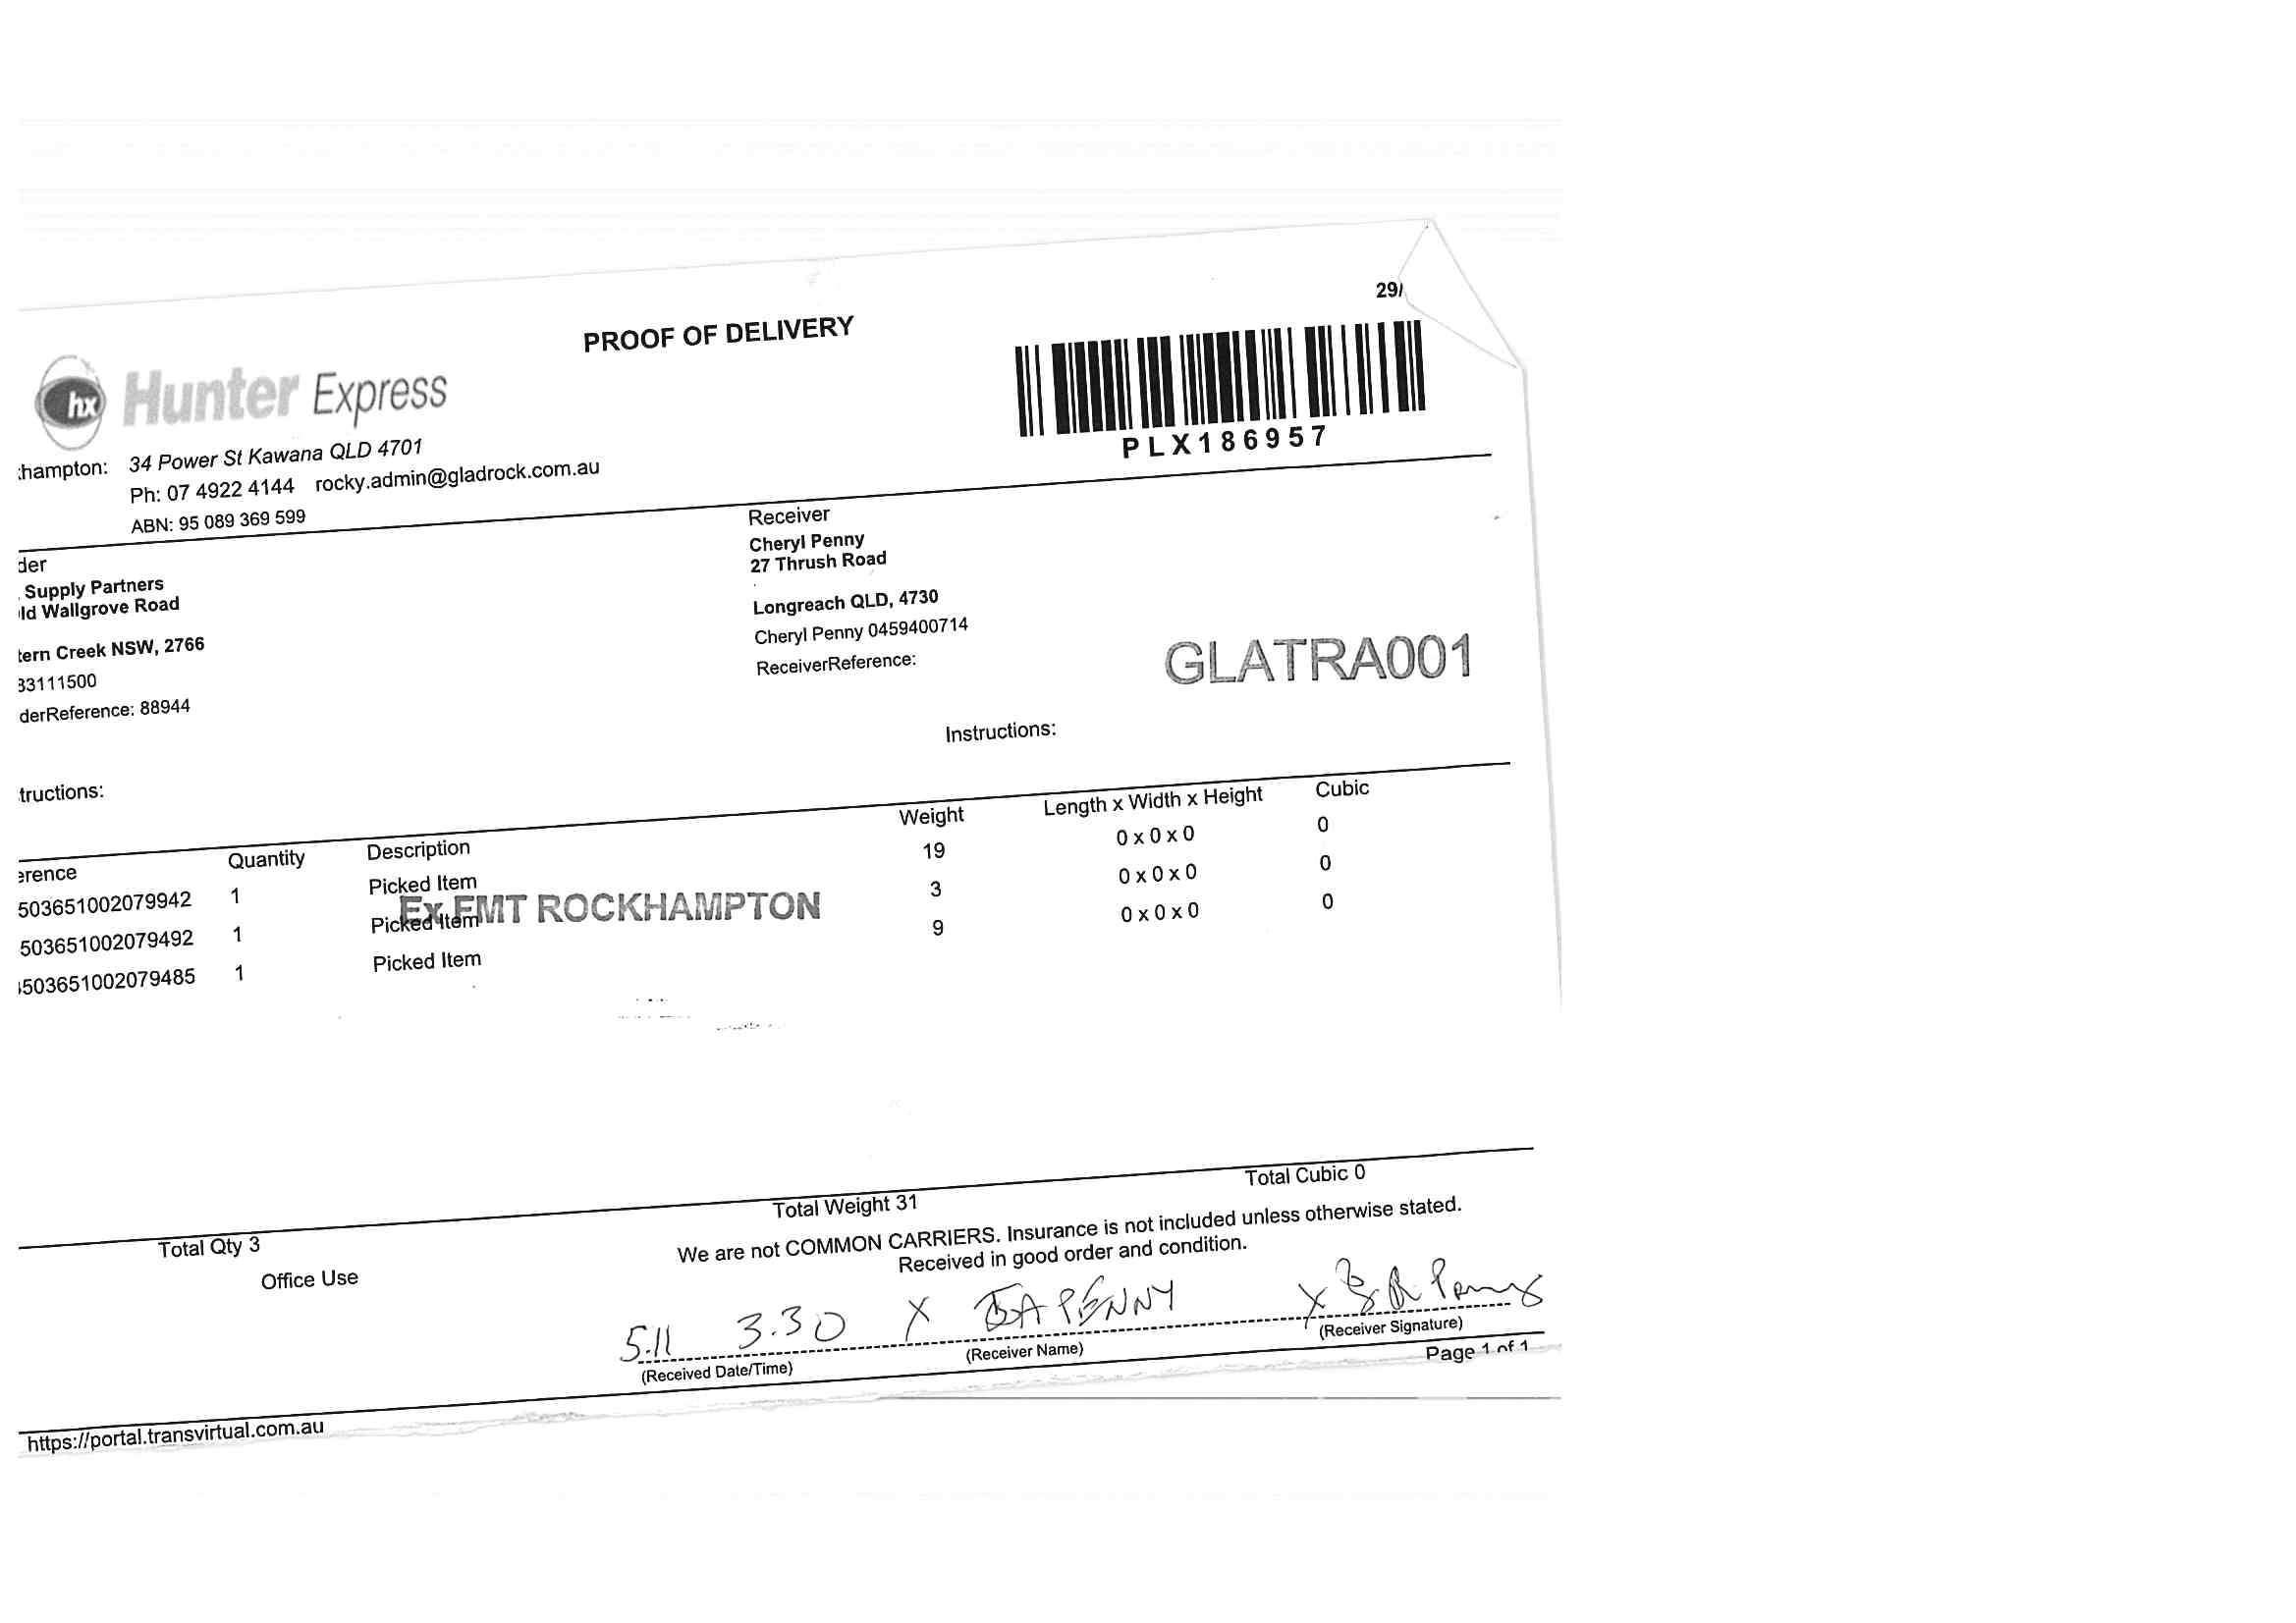 29/
PROOF OF DELIVERY
hx Hunter Express
PLX186957
:hampton: 34 Power St Kawana QLD 4701
Ph: 07 4922 4144 rocky.admin@gladrock.com.au
ABN: 95 089 369 599
der
Supply Partners
ld Wallgrove Road
tern Creek NSW, 2766
33111500
derReference: 88944
Receiver
Cheryl Penny
27 Thrush Road
Longreach QLD, 4730
Cheryl Penny 0459400714
ReceiverReference:
GLATRA001
tructions:
Instructions:
erence Quantity Description Weight Length x Width x Height Cubic
503651002079942 1 Picked Item 19 0 x 0 x 0 0
503651002079492 1 Picked Item 3 0 x 0 x 0 0
503651002079485 1 Picked Item 9 0 x 0 x 0 0
Ex FMT ROCKHAMPTON
Total Qty 3 Total Weight 31 Total Cubic 0
Office Use
We are not COMMON CARRIERS. Insurance is not included unless otherwise stated.
Received in good order and condition.
5.11 3.30 X PENNY X Penny
(Received Date/Time) (Receiver Name) (Receiver Signature)
Page 1 of 1
https://portal.transvirtual.com.au